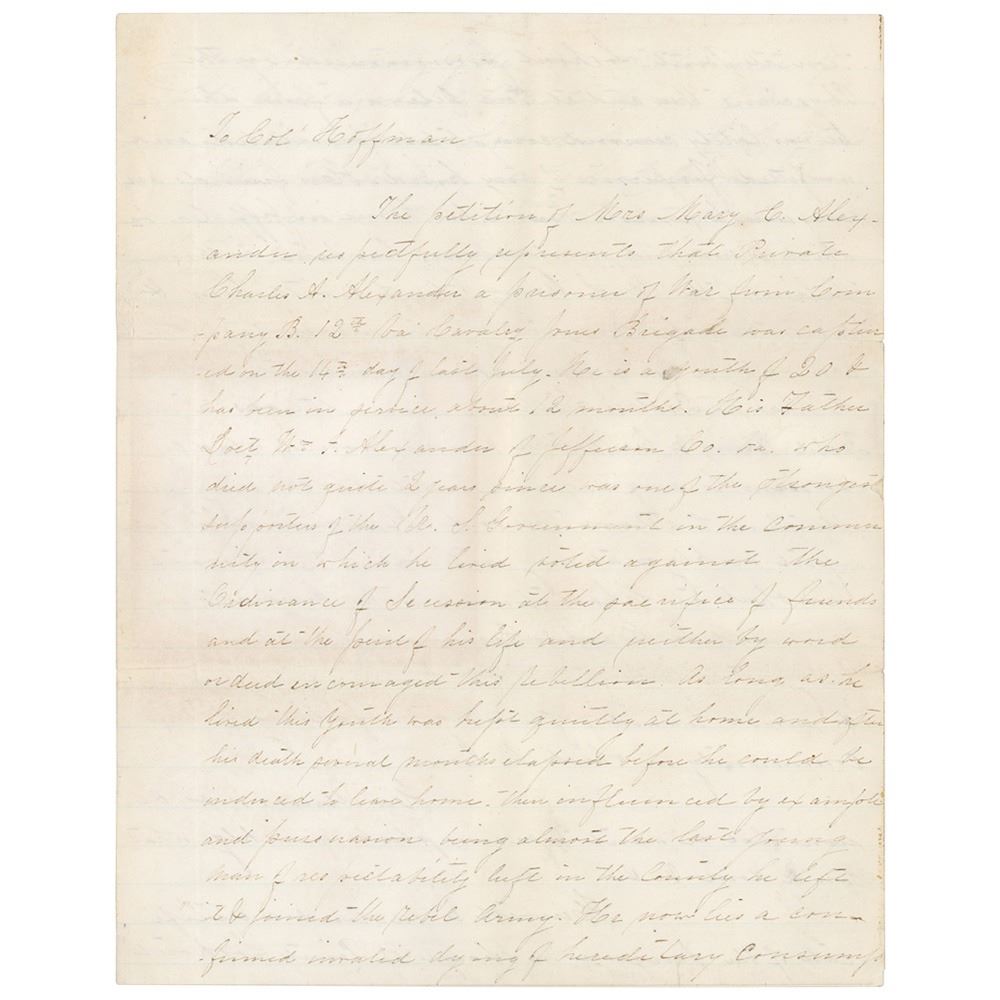 To Col Hoffman
The petition of Mrs Mary C. Alex-
ander respectfully represents that Private
Charles A. Alexander a prisoner of War from Com
-pany B. 12th Va Cavalry Jones Brigade was captur
-ed on the 14th day of last July. He is a youth of 20 &
has been in service about 12 months. His Father
Doct Wm F. Alexander of Jefferson Co. va. who
died not quite 2 years since was one of the strongest
supporters of the U. S Government in the commun
nity in which he lived voted against the
Ordinance of Secession at the sacrifice of friends
and at the peril of his life and neither by word
or deed encouraged this rebellion. As long as he
lived this Youth was kept quietly at home and after
his death several months elapsed before he could be
induced to leave home. then influenced by example
and pursuasion being almost the last young
man of respectability left in the County he left
it & joined the rebel Army. He now lies a con-
-firmed invalid dying of hereditary Consump